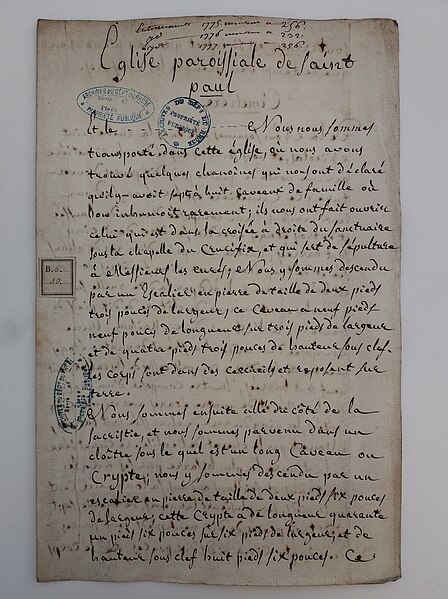 Enterrements 1775 montent à 256.
1776 montent à 232.
1777 montent à 256.
Eglise paroissiale de Saint
paul
ARCHIVES DU DÉPT DU RHÔNE
PROPRIÉTÉ PUBLIQUE
ARCHIVES DU DÉPT DU RHÔNE
PROPRIÉTÉ PUBLIQUE
et le Nous nous sommes
transporté dans cette église, ou nous avons
trouvé quelques chanoines qui nous ont déclaré
qu'il y avoit sept à huit caveaux de famille où
l'on inhumoit rarement; ils nous ont fait ouvrir
celui qui est dans la croisée à droite du sanctuaire
sous la chapelle du Crucifix, et qui sert de sépulture
à Messieurs les curés; Nous y sommes descendu
par un Escalier en pierre de taille de deux pieds
trois pouces de largeur, ce Caveau a neuf pieds
neuf pouces de longueur sur trois pieds de largeur
et de quatre pieds trois pouces de hauteur sous clef
les corps sont dans des cercueils et reposent sur
terre.
Nous sommes ensuite allé du côté de la
sacristie, et nous sommes parvenu dans un
cloître sous le quel est un long Caveau ou
Crypte, nous y sommes descendu par un
escalier en pierre de taille de deux pieds six pouces
de largeur, cette Crypte a de longueur quarante
un pieds six pouces sur six pieds de largeur, et de
hauteur sous clef huit pieds six pouces. Ce
B. 6.
50.